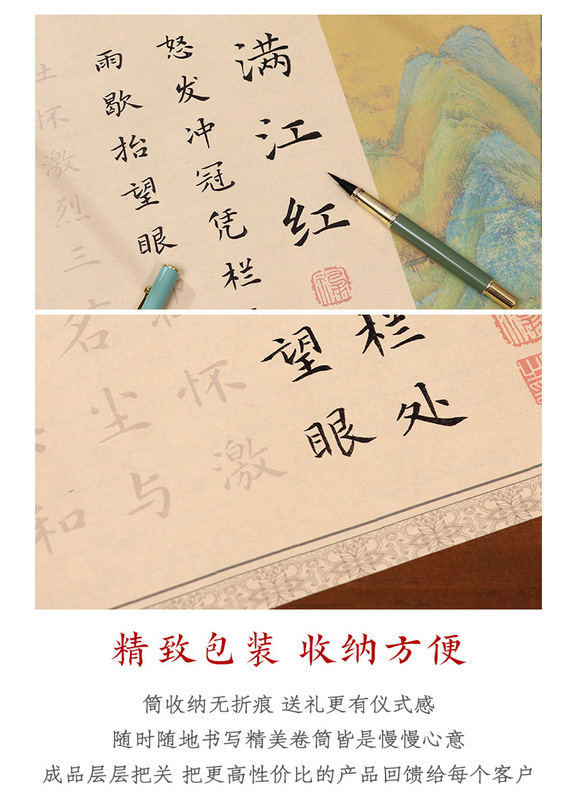 满江红
怒发冲冠凭栏
雨歇抬望眼
怀激烈三
栏处
望眼
怀激
名尘与
和
精致包装 收纳方便
筒收纳无折痕 送礼更有仪式感
随时随地书写精美卷筒皆是慢慢心意
成品层层把关 把更高性价比的产品回馈给每个客户